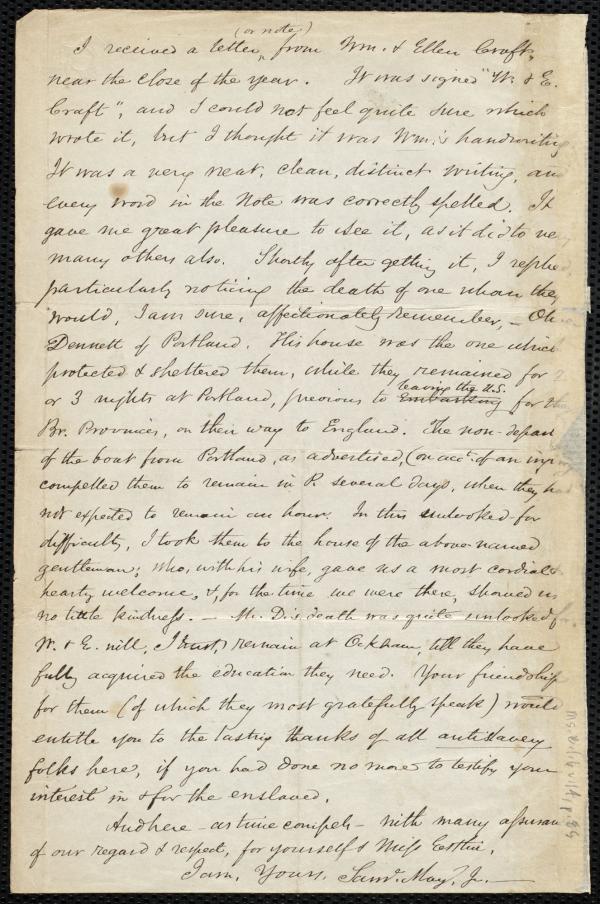 (or note)
I received a letter, from Wm. & Ellen Craft,
near the close of the year. It was signed "W. & E.
Craft", and I could not feel quite sure which
wrote it, but I thought it was Wm.'s handwriting
It was a very neat, clean, distinct writing, an
every word in the Note was correctly spelled. It
gave me great pleasure to see it, as it did to ve
many others also. Shortly after getting it, I replied
particularly noticing the death of one whom they
would, I am sure, affectionately remember, – Ol.
Dennett of Portland. His house was the one which
protected & sheltered them, while they remained for 2
leaving the U.S.
or 3 nights at Portland, previous to Embarking for the
Br. Provinces, on their way to England. The non-depar
of the boat from Portland, as advertised, (on acct. of an
compelled them to remain in P. several days, when they h
not expected to remain an hour. In this unlooked-for
difficulty, I took them to the house of the above-named
gentleman; who, with his wife, gave us a most cordial &
hearty welcome, &, for the time we were there, showed us
no little kindness. – Mr. D's death was quite unlooked f
W. & E. will, I trust, remain at Ockham, till they have
fully acquired the education they need. Your friendship
for them (of which they most gratefully speak) would
entitle you to the lasting thanks of all antislavery
folks here, if you had done no more to testify your
interest in & for the enslaved.
And here – as time compels – with many assuran
of our regard & respect, for yourself & Miss Estlin,
I am, Yours, Saml. May, Jr.